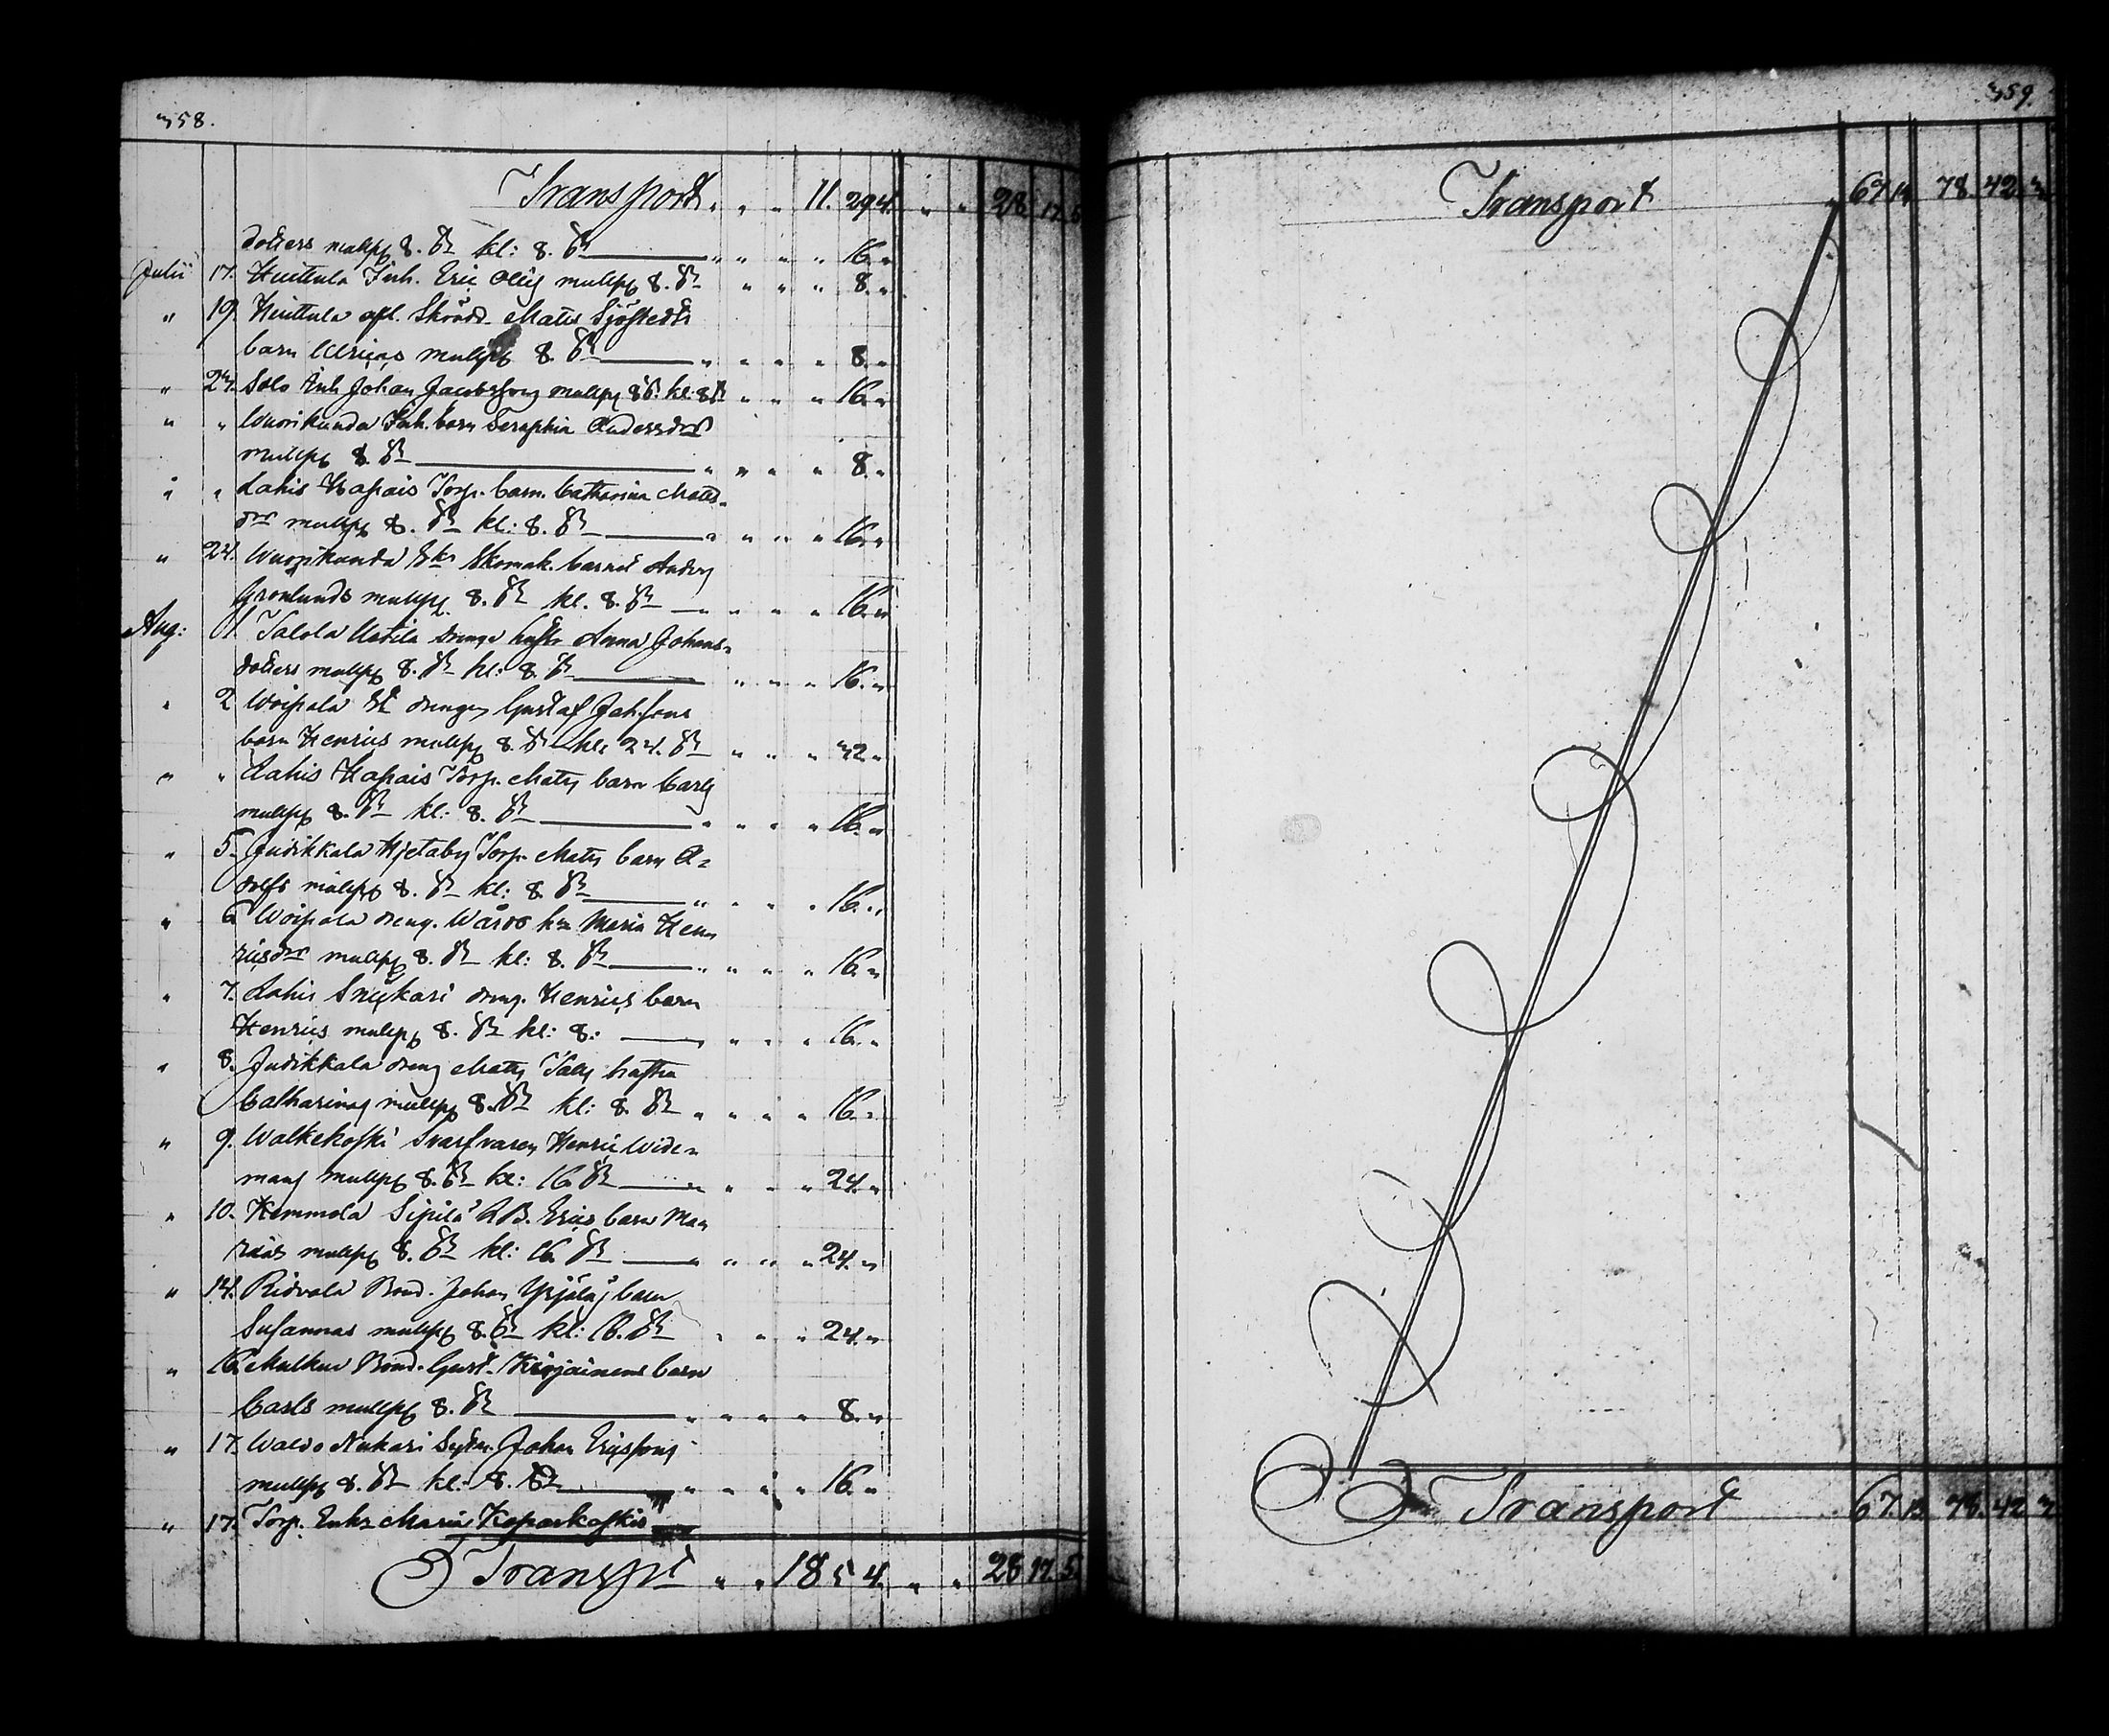 358.
Transport " " " 11. 29 4. " " 28 17. 5
dotters mullp 8. ß kl: 8. ß " " " " 16. "
Julii 17. Huittula Inh. Eric mullp 8. ß " " " 8. "
" 19. Huittula afl. Skrädd. Matts Sjöstedts
barn Ulricas mullp 8. ß " " " " 8. "
" 23. Inh Johan Jacobssons mullp 8 ß. kl: 8 ß " " " 16. "
" " Wuorikunda Inh. barn Seraphia Andersdr
mullp 8. ß " " " " 8. "
" " Lahis Hapais Torp. barn. Catharina Matts-
dr mullp 8. ß kl: 8. ß " " " " 16. "
" 24. Wuorikunda Skomak. barnet Anders
Grönlunds mullp 8. ß kl. 8. ß " " " " 16. "
Aug: 1. Talola Uotila drängs hustr Anna Johans-
dotters mullp 8. ß kl: 8. ß " " " 16. "
" 2 Woipala drängen Gustaf Joh.sons
barn Henrics mullp 8. ß kl: 24. ß " " " 32 "
" " Lahis Hapais Torp. Matts barn Carls
mullp 8. ß kl: 8. ß " " " " 16. "
" 5. Judikkala Hjetaby Torp. Matts barn A-
dolfs mullp 8. ß kl: 8. ß " " " " 16. "
" 6 Woipala dräng. Maria Hen-
ricsdr mullp 8. ß kl: 8. ß " " " " 16. "
" 7. Lahis Snickari dräng. Henrics barn
Henrics mullp 8. ß kl: 8: " " " " 16. "
" 8. Judikkala dräng Matts hustru
Catharinas mullp 8. ß kl: 8. ß " " " " 16. "
" 9. Walkekoski Svarfvaren Henric Wide-
mans mullp 8. ß kl: 16 ß " " " " 24. "
" 10. Kemmola Sipilä Erics barn Ma-
rias mullp 8. ß kl: 16. ß " " " " 24. "
" 14. Ridvala Bond. Johan Yrjäläs barn
Susannas mullp 8. ß kl: 16. ß " " " 24. "
" 16. Bond. Gust. barn
Carls mullp 8. ß " " " " 8. "
" 17. Nukari Johan Ericssons
mullp 8. ß kl: 8. ß " " " " 16. "
" 17. Torp. Enk. Maria
Transpt " " 18 5 4. " " 28 17. 5
359.
Transport " 67 13 78. 42. 3
Transport 67. 13 78. 42 3